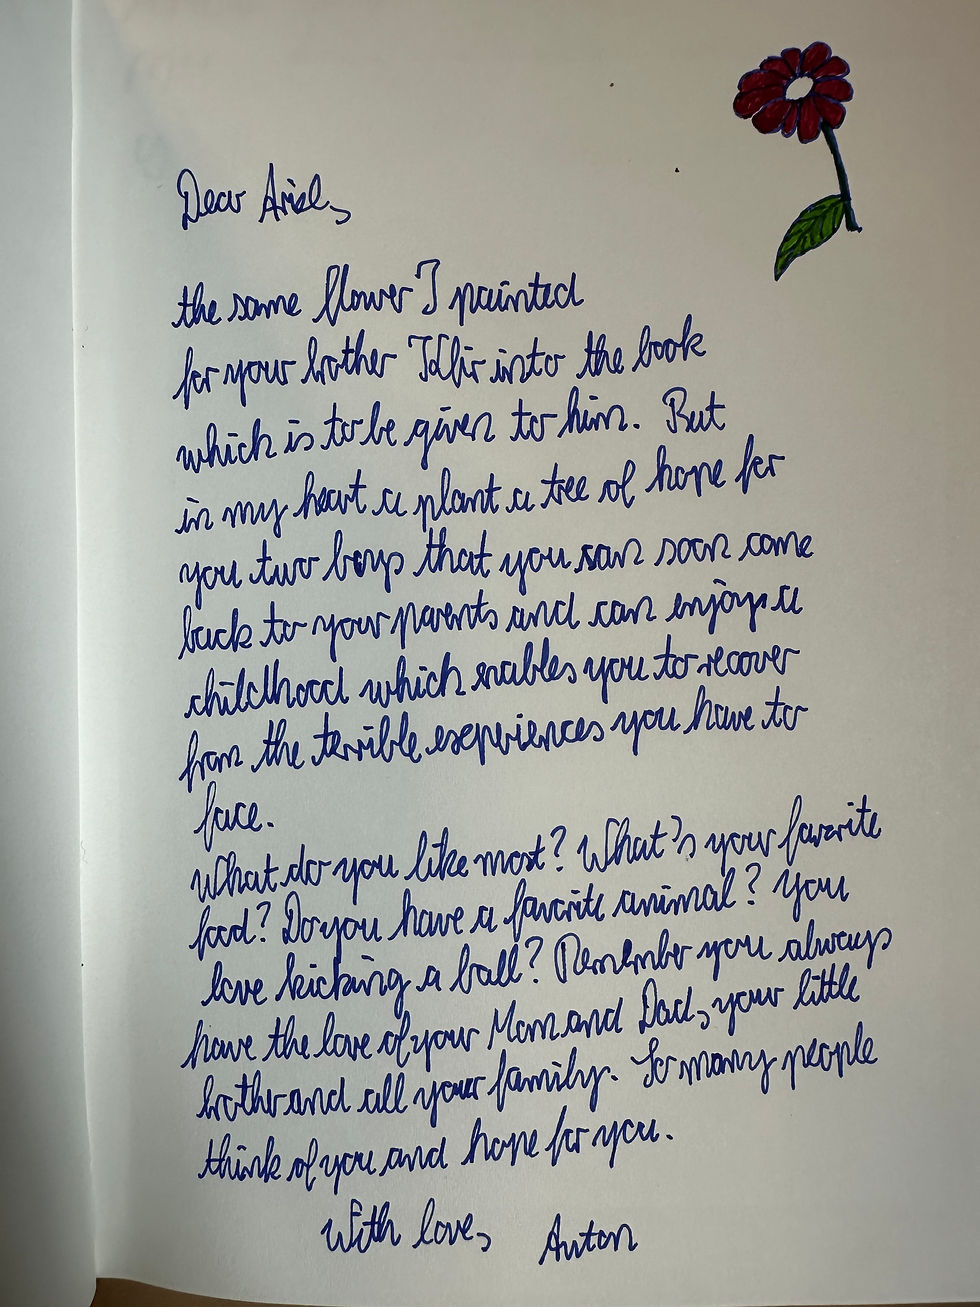 Dear Ariel,
the same flower I painted
for your brother Kfir into the book
which is to be given to him. But
in my heart a plant a tree of hope for
you two boys that you can soon come
back to your parents and can enjoy a
childhood which enables you to recover
from the terrible experiences you have to
face.
What do you like most? What's your favorite
food? Do you have a favorite animal? You
love kicking a ball? Remember you always
have the love of your Mom and Dad, your little
brother and all your family. So many people
think of you and hope for you.
With love, Anton